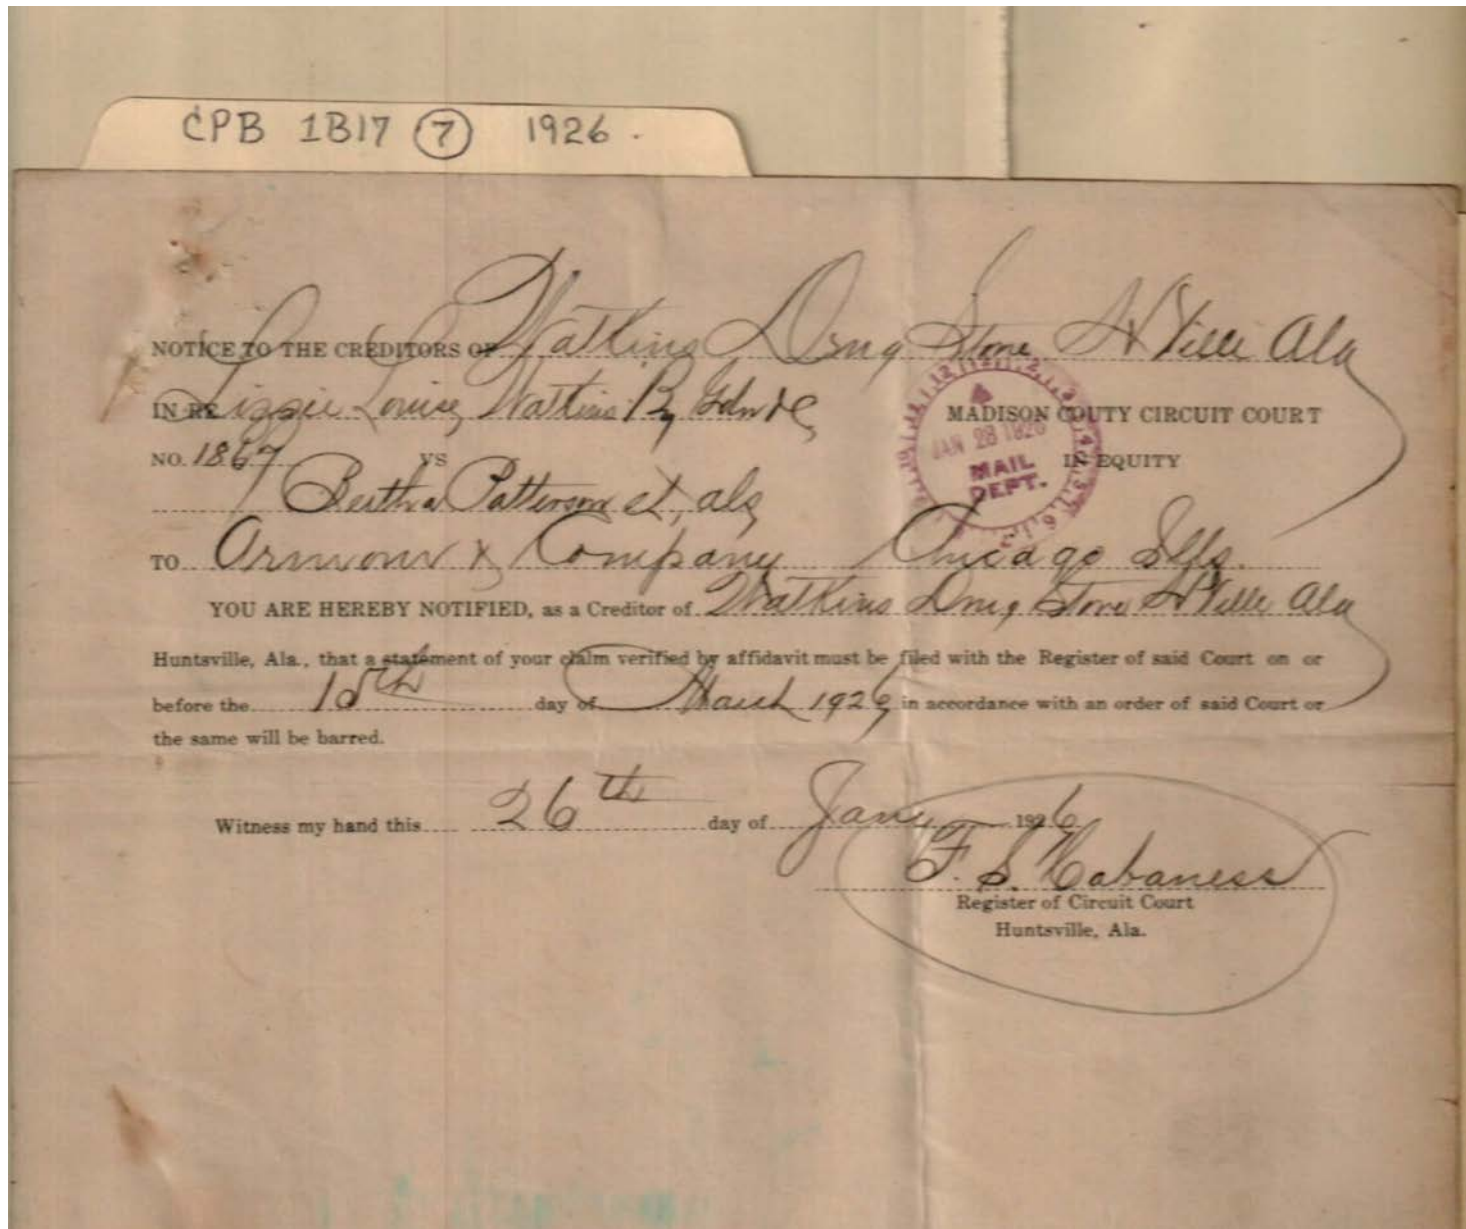 CPB 1B17 7 1926
NOTICE TO THE CREDITORS OF Watkins Drug Store H Ville Ala
IN RE Lizzie Louise Watkins By
MADISON COUTY CIRCUIT COURT
NO. 1867 VS IN EQUITY
JAN 28 1926
MAIL
DEPT.
Bertha Patterson et, als
TO Armour & Company Chicago Ills.
YOU ARE HEREBY NOTIFIED, as a Creditor of Watkins Drug Store H Ville Ala
Huntsville, Ala., that a statement of your claim verified by affidavit must be filed with the Register of said Court on or
before the 15th day of March 1926 in accordance with an order of said Court or
the same will be barred.
Witness my hand this 26th day of Jany 1926
F. S. Cabaness
Register of Circuit Court
Huntsville, Ala.